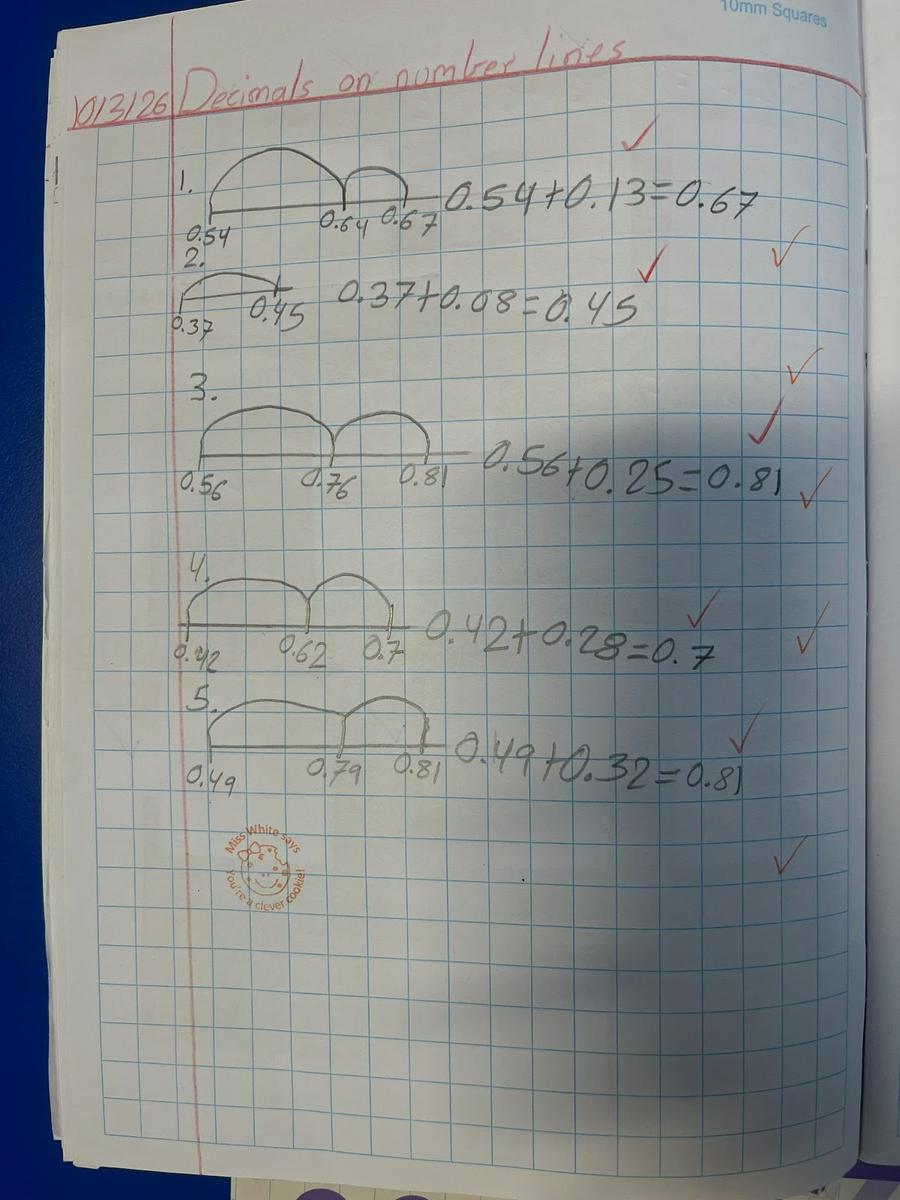 10mm Squares
10/3/26 Decimals on number lines
1.
0.54 0.64 0.67 0.54+0.13=0.67
2.
0.37 0.45 0.37+0.08=0.45
3.
0.56 0.76 0.81 0.56+0.25=0.81
4.
0.42 0.62 0.7 0.42+0.28=0.7
5.
0.49 0.79 0.81 0.49+0.32=0.81
Miss White says
You're a clever cookie!